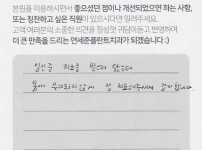 본원을 이용하시면서 좋으셨던 점이나 개선되었으면 하는 사항,
또는 칭찬하고 싶은 직원이 있으시다면 알려주세요.
고객 여러분의 소중한 의견을 정성껏 귀담아듣고 반영하여
더 큰 만족을 드리는 연세춘플란트치과가 되겠습니다 :)
임신중 치료를 받으러 왔는데
몸에 무리되지않게 잘 치료해주셔서 감사합니다